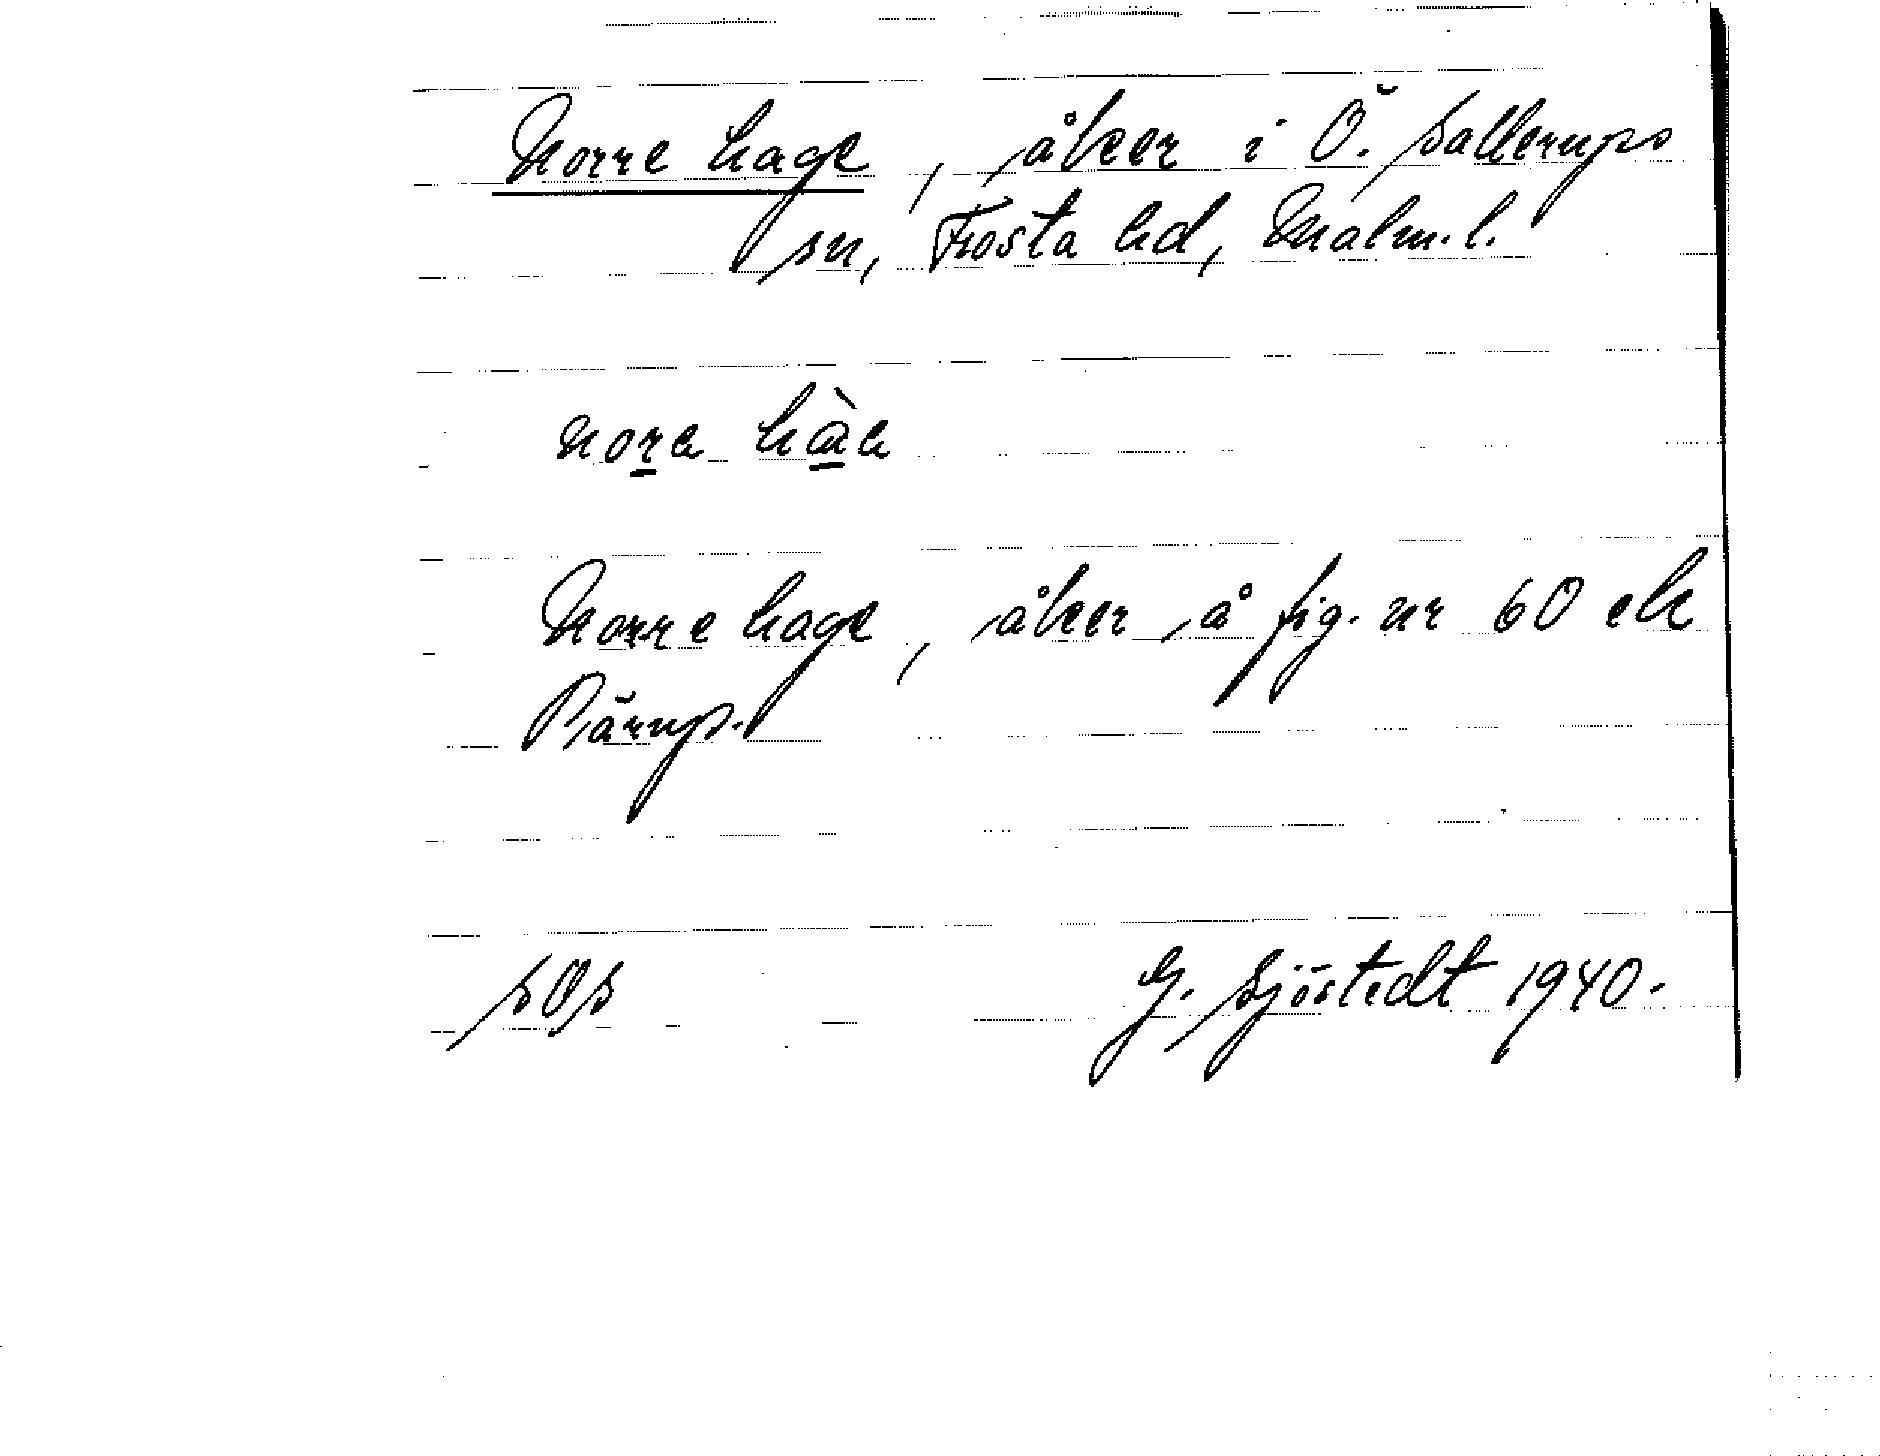 Norre hage, åker i Ö. Sallerups
sn, Frosta hd, Malm. l.
nora hàa
Norre hage, åker å fig. nr 60 ek
Pärup.
SOS
G. Sjöstedt 1940.